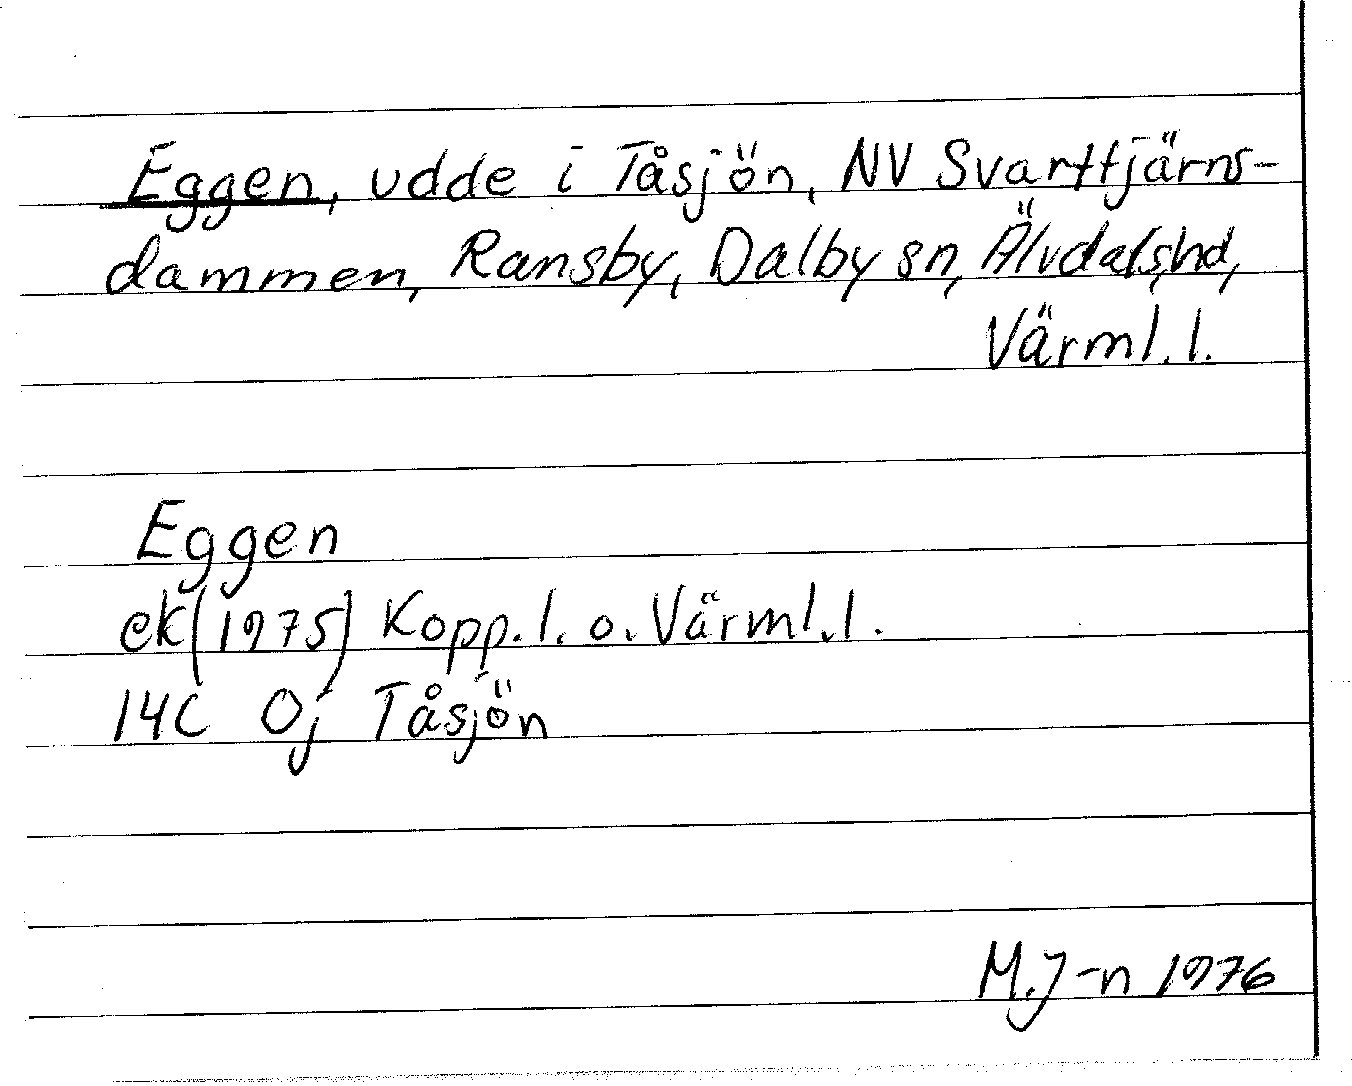 Eggen, udde i Tåsjön, NV Svarttjärns-
dammen, Ransby, Dalby sn, Älvdals hd,
Värml. l.
Eggen
ek (1975) Kopp. l. o. Värml. l.
14C 0j Tåsjön
M. J-n 1976